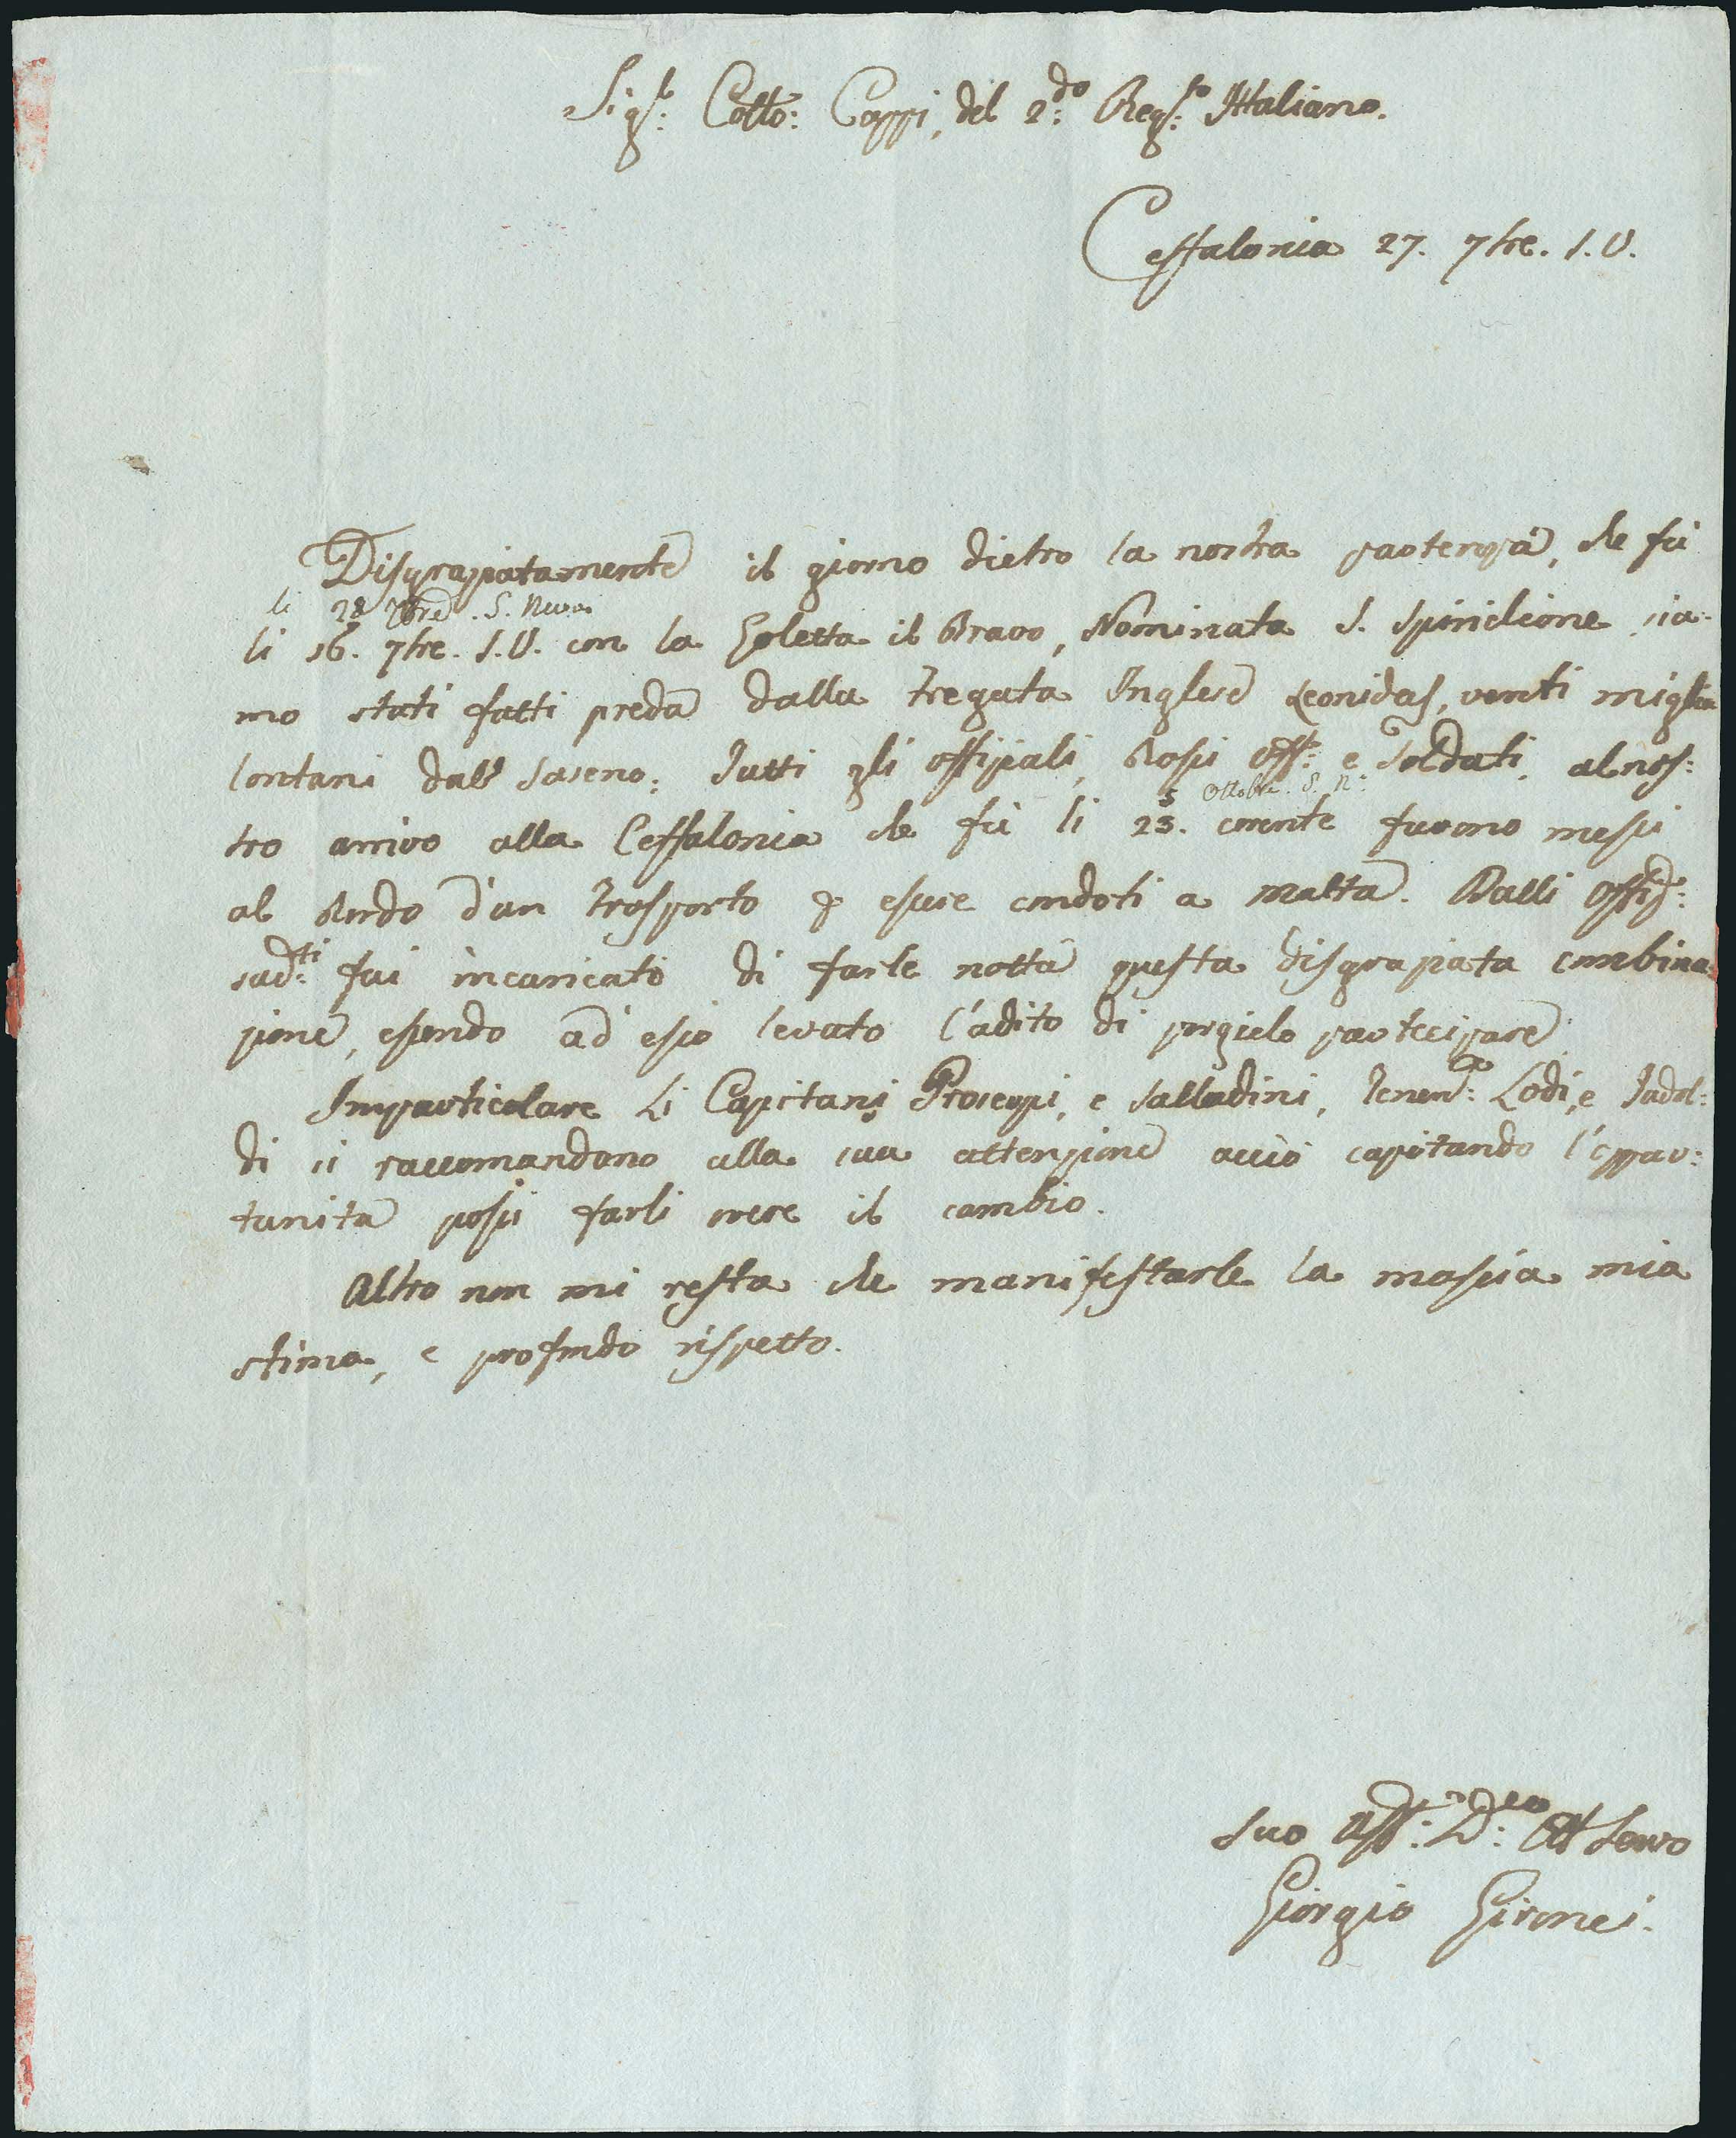 Sig.r Collo: Coppi, del 2.do Reg.to Ittaliano.
Ceffalonia 27. 7bre. S.V.
Disgraziatamente il giorno dietro la nostra partenza, che fù
li 28 7bre. S. Nuovo
li 16. 7bre. S.V. con la Goletta il Bravo, Nominata S. Spiridione sia:
mo stati fatti preda dalla Fregata Inglese Leonidas, venti miglia
lontani dall Saseno: Tutti gli offiziali, Bassi Off: e Soldati, al nos:
5 Ottobre. S. N:
tro arrivo alla Ceffalonia che fù li 23. corente furono messi
al Bordo d'un Trasporto p essere condoti a Malta. Dalli Offiz:
sud:ti fui incaricato di farle notta questa disgraziata combina
zione, essendo ad essi levato l'adito di porgielo partecipare.
Imparticolare Li Capitani Proserpi, e Salladini, Tenen: Lodi, e Tadol:
di si raccomandono alla sua attenzione acciò capitando l'oppor:
tunita possi farli avere il cambio.
Altro non mi resta che manifestarle la massia mia
stima, e profondo rispetto.
Suo Aff: D: Servo
Giorgio Gironci.